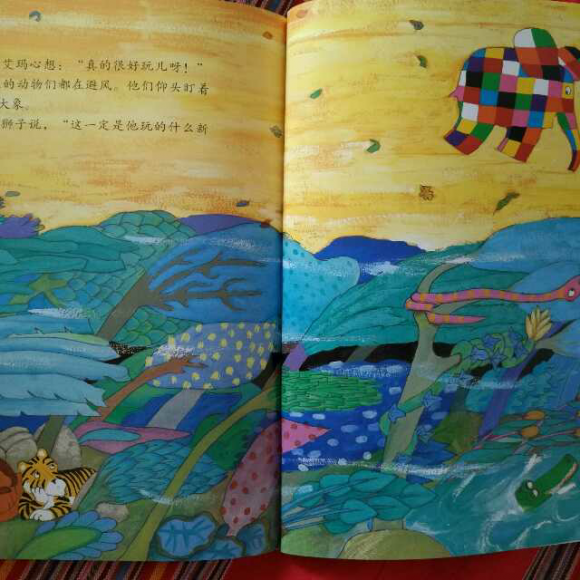 艾玛心想：“真的很好玩儿呀！”
的动物们都在避风。他们仰头盯着
大象。
狮子说，“这一定是他玩的什么新